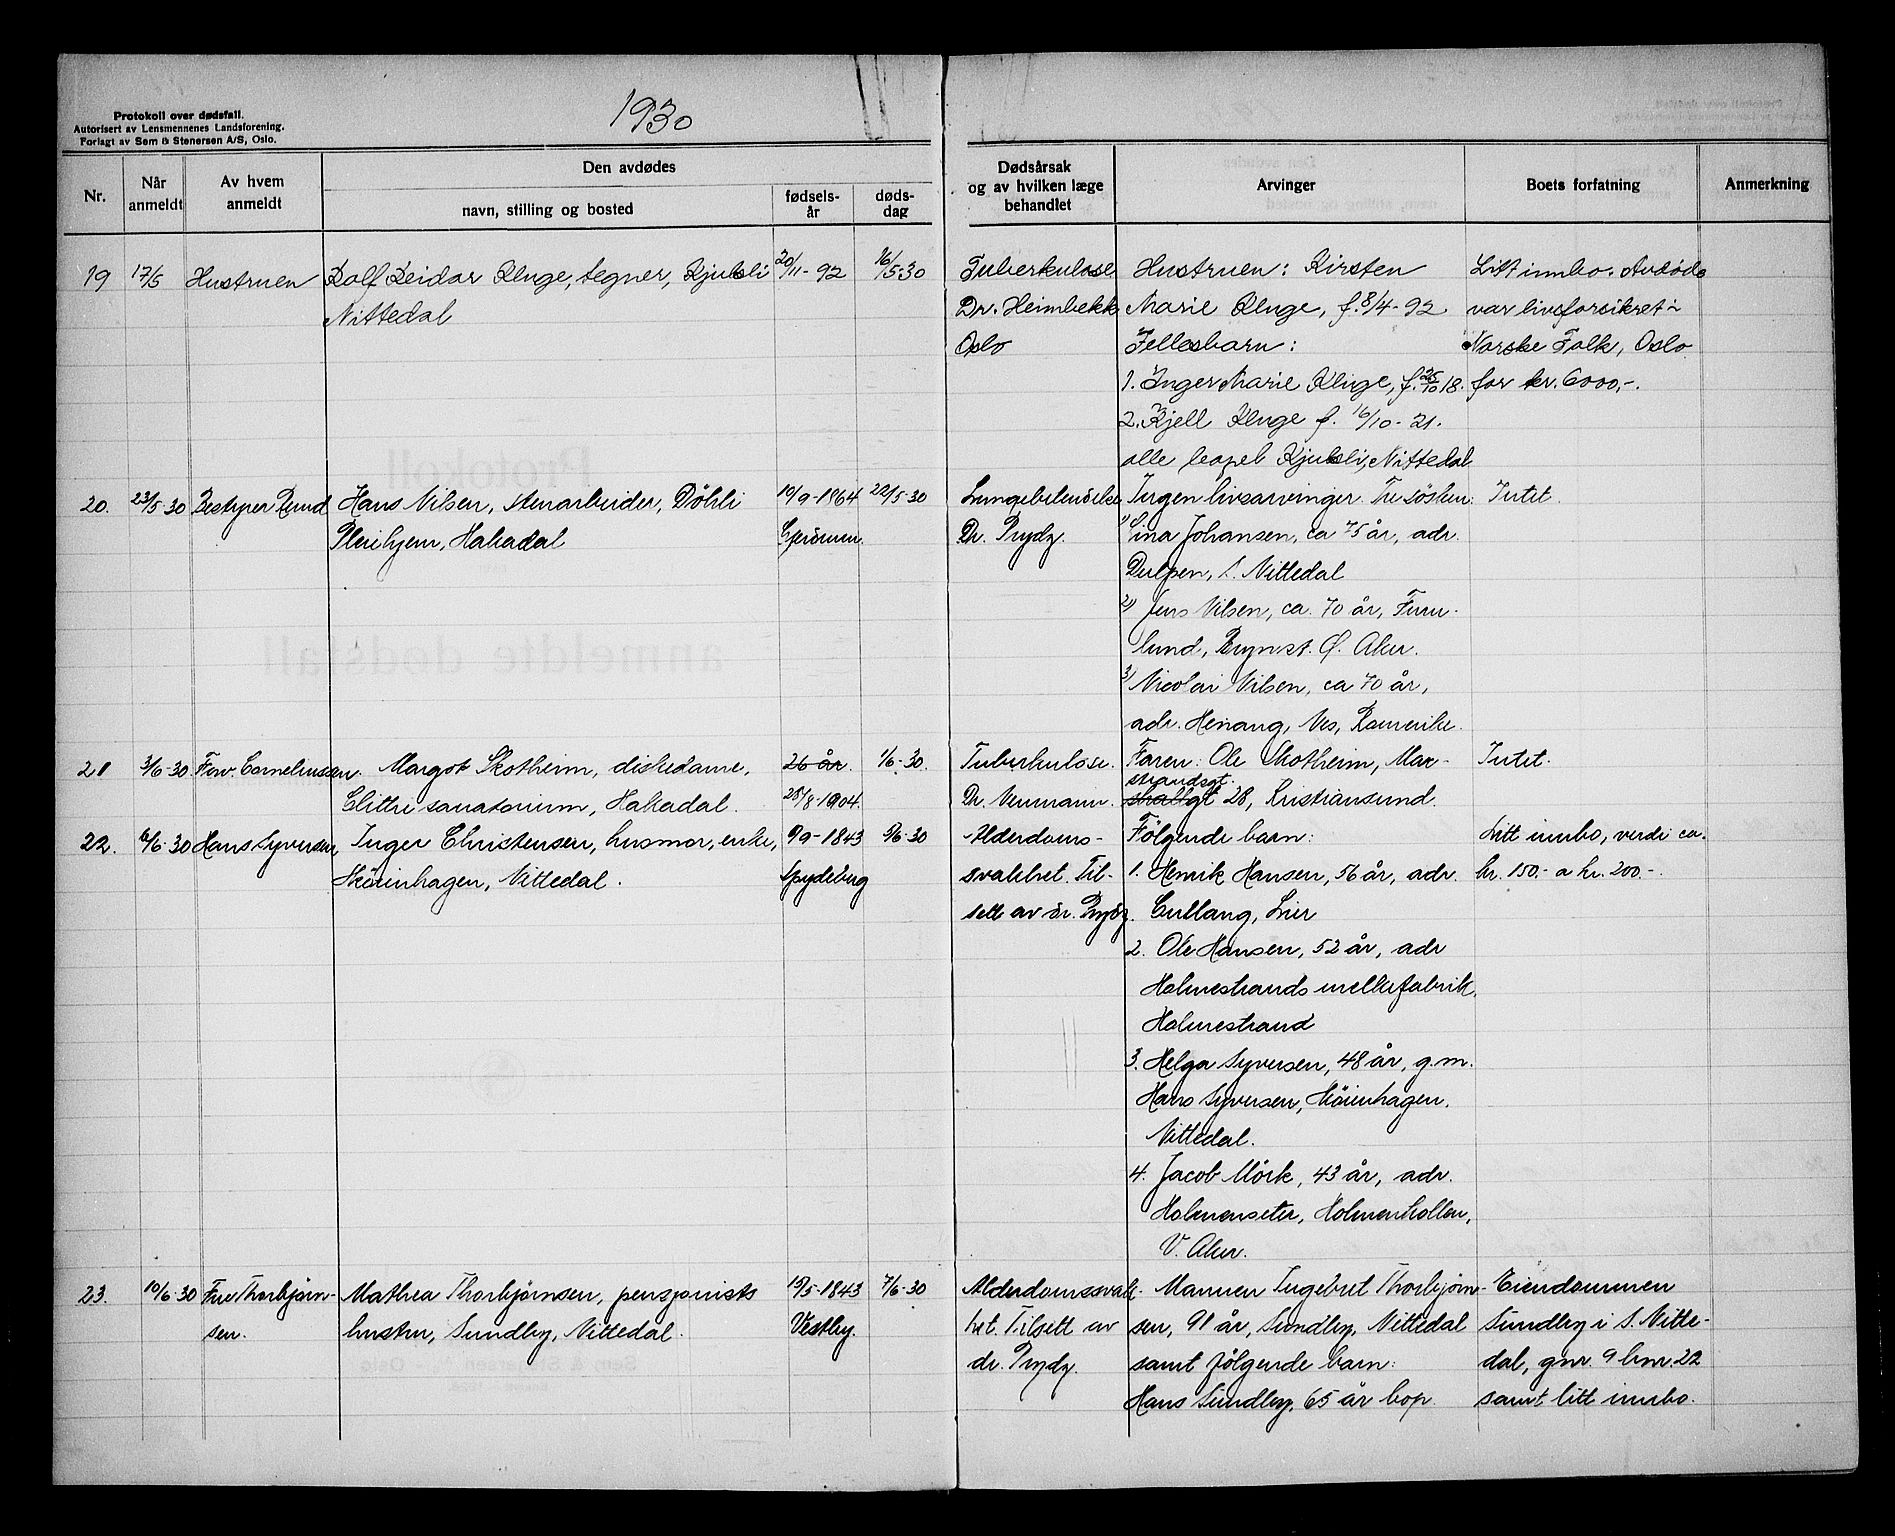 Protokoll over dødsfall.
Autorisert av Lensmennenes Landsforening.
Forlagt av Sem & Stenersen A/S, Oslo.
1930
Nr.
Når anmeldt
Av hvem anmeldt
Den avdødes
navn, stilling og bosted
fødsels-år
døds-dag
Dødsårsak og av hvilken læge behandlet
Arvinger
Boets forfatning
Anmerkning
19 17/5 Hustruen Rolf Reidar Kluge, tegner, Kjulsli 20/11-92 16/5-30 Tuberkulose Hustruen: Kirsten Litt innbo. Avdøde
Nittedal Dr. Heimbekk Marie Kluge, f. 8/4-92 var livsforsikret i
Oslo Fellesbarn: Norske Folk, Oslo
1. Inger Marie Kluge, f. 25/10 18. for kr. 6000,-.
2. Kjell Kluge f. 16/10-21.
alle bopel Kjulsli, Nittedal
20. 23/5-30 Bestyrer Rund Hans Nilsen, stenarbeider, Döhli 10/9-1864 22/5-30 Ingen livsarvinger. Tre sösken: Intet.
Pleiehjem, Hakadal Dr. Prydz. 1) Lina Johansen, ca 75 år, adr.
S. Nittedal
2) Jens Nilsen, ca. 70 år, Furu-
lund, Brynst. Ø. Aker.
3) Nicolai Nilsen, ca 70 år,
adr. Henang, Nes, Romerike.
21 3/6-30 Forv. Corneliussen. Margot Skotheim, diskedame, 26 år. 1/6-30. Tuberkulose. Faren: Ole Skotheim, Mar- Intet.
Glittre sanatorium, Hakadal. 28/8-1904. Dr. Neumann. strandsgt. 28, Kristiansund.
22. 6/6-30 Hans Syversen, Inger Christensen, husmor, enke, 9/9-1843 5/6-30 Alderdoms- Følgende barn: Litt innbo, verdi ca.
Sköienhagen, Nittedal. Spydeberg svakhet. Til- 1. Henrik Hansen, 56 år, adr. kr. 150.- a kr. 200.-.
sett av dr. Prydz. Gullaug, Lier
2. Ole Hansen, 52 år, adr
Holmestrands melkefabrik,
Holmestrand
3. Helga Syversen, 48 år, g.m.
Hans Syversen, Sköienhagen,
Nittedal.
4. Jacob Mörk, 43 år, adr.
Holmenseter, Holmenkollen,
V. Aker.
23. 10/6-30 Fru Thorbjørn- Mathea Thorbjørnsen, pensjonists 19/5-1843 7/6-30 Alderdomssvak- Mannen Ingebret Thorbjørn- Eiendommen
sen. hustru, Sundby, Nittedal. Vestby. het. Tilsett av sen, 91 år, Sundby, Nittedal Sundby i S. Nitte-
dr. Prydz. samt følgende barn: dal, gnr. 9 bnr. 22
Hans Sundby, 65 år bop. samt litt innbo.